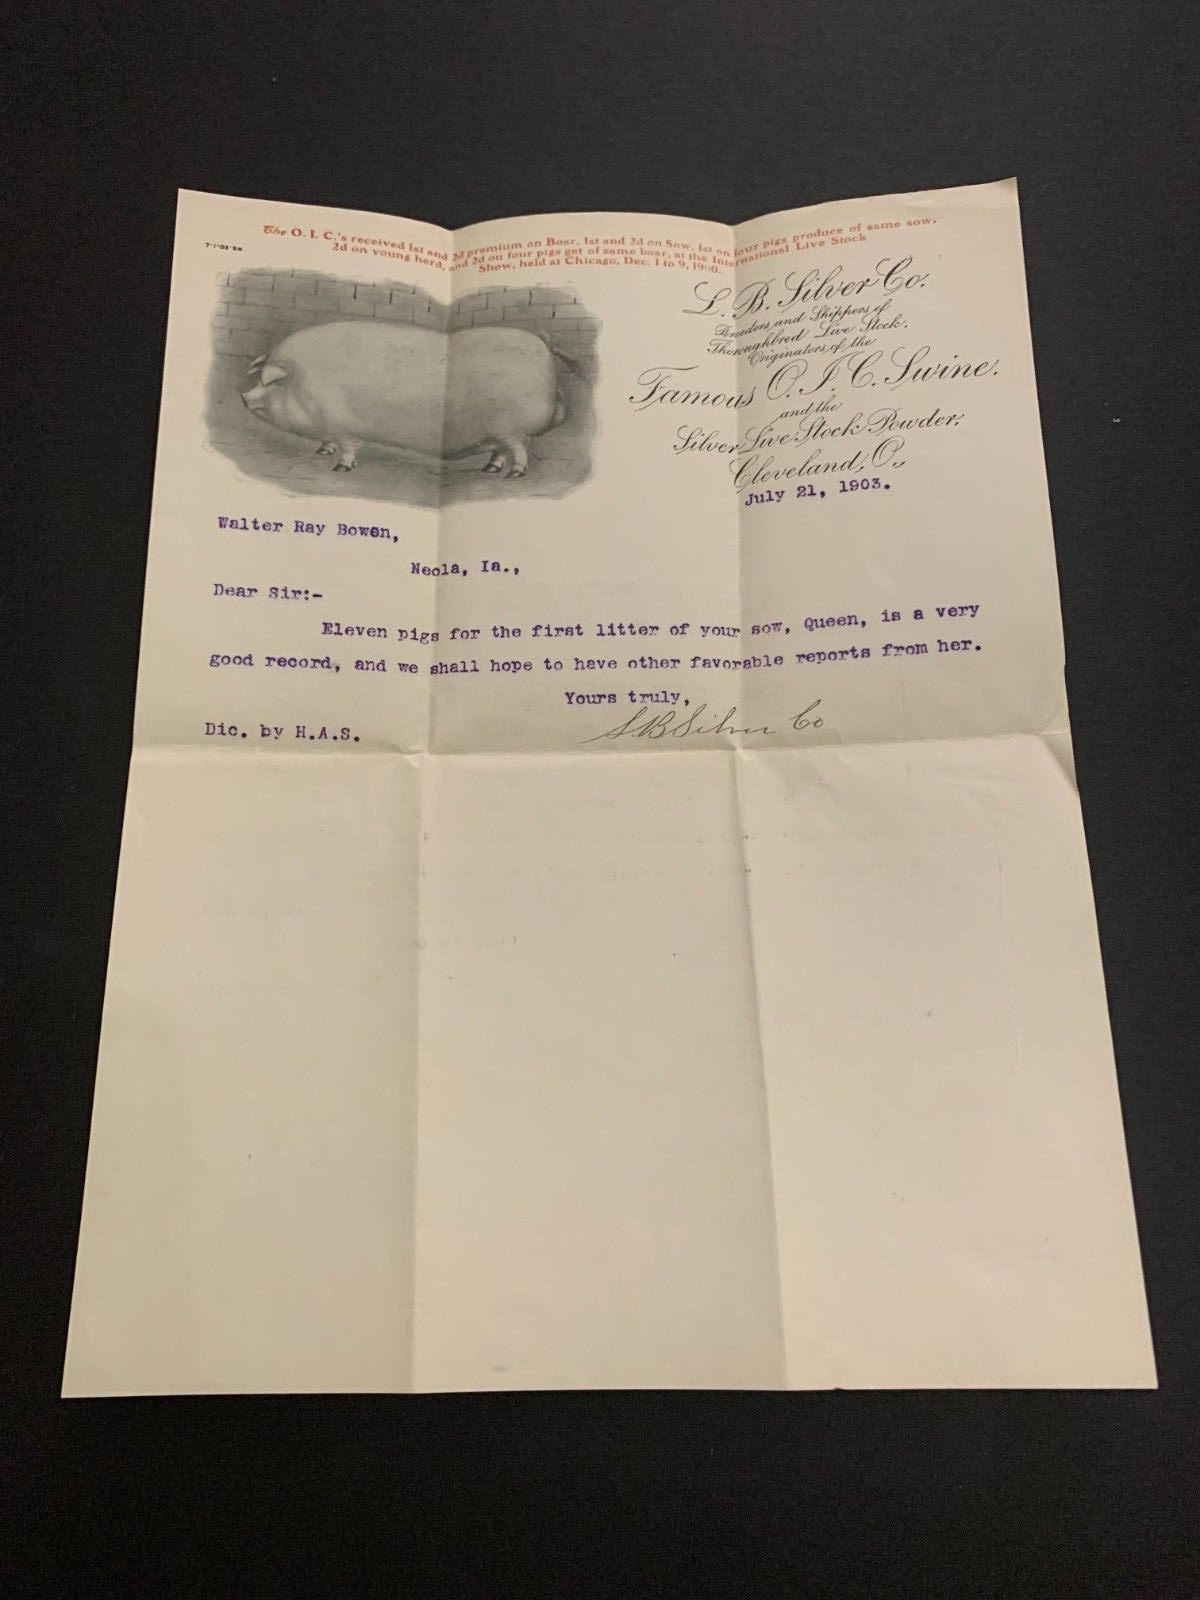 The O. I. C.'s received 1st and 2d premium on Boar, 1st and 2d on Sow, 1st on four pigs produce of same sow,
2d on young herd, and 2d on four pigs get of same boar, at the International Live Stock
Show, held at Chicago, Dec. 1 to 9, 1900.
L. B. Silver Co.
Breeders and Shippers of
Thoroughbred Live Stock.
Originators of the
Famous O. I. C. Swine.
and the
Silver Live Stock Powder,
Cleveland, O.,
July 21, 1903.
Walter Ray Bowen,
Neola, Ia.,
Dear Sir:-
Eleven pigs for the first litter of your sow, Queen, is a very
good record, and we shall hope to have other favorable reports from her.
Yours truly,
L.B. Silver Co
Dic. by H.A.S.